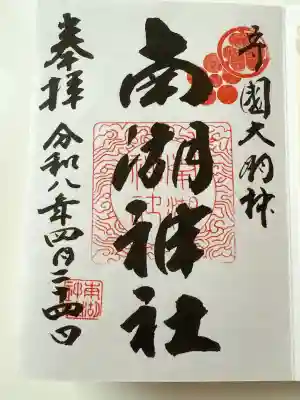 守國大明神
南湖神社
奉拝
令和八年四月二十四日
南湖
神社